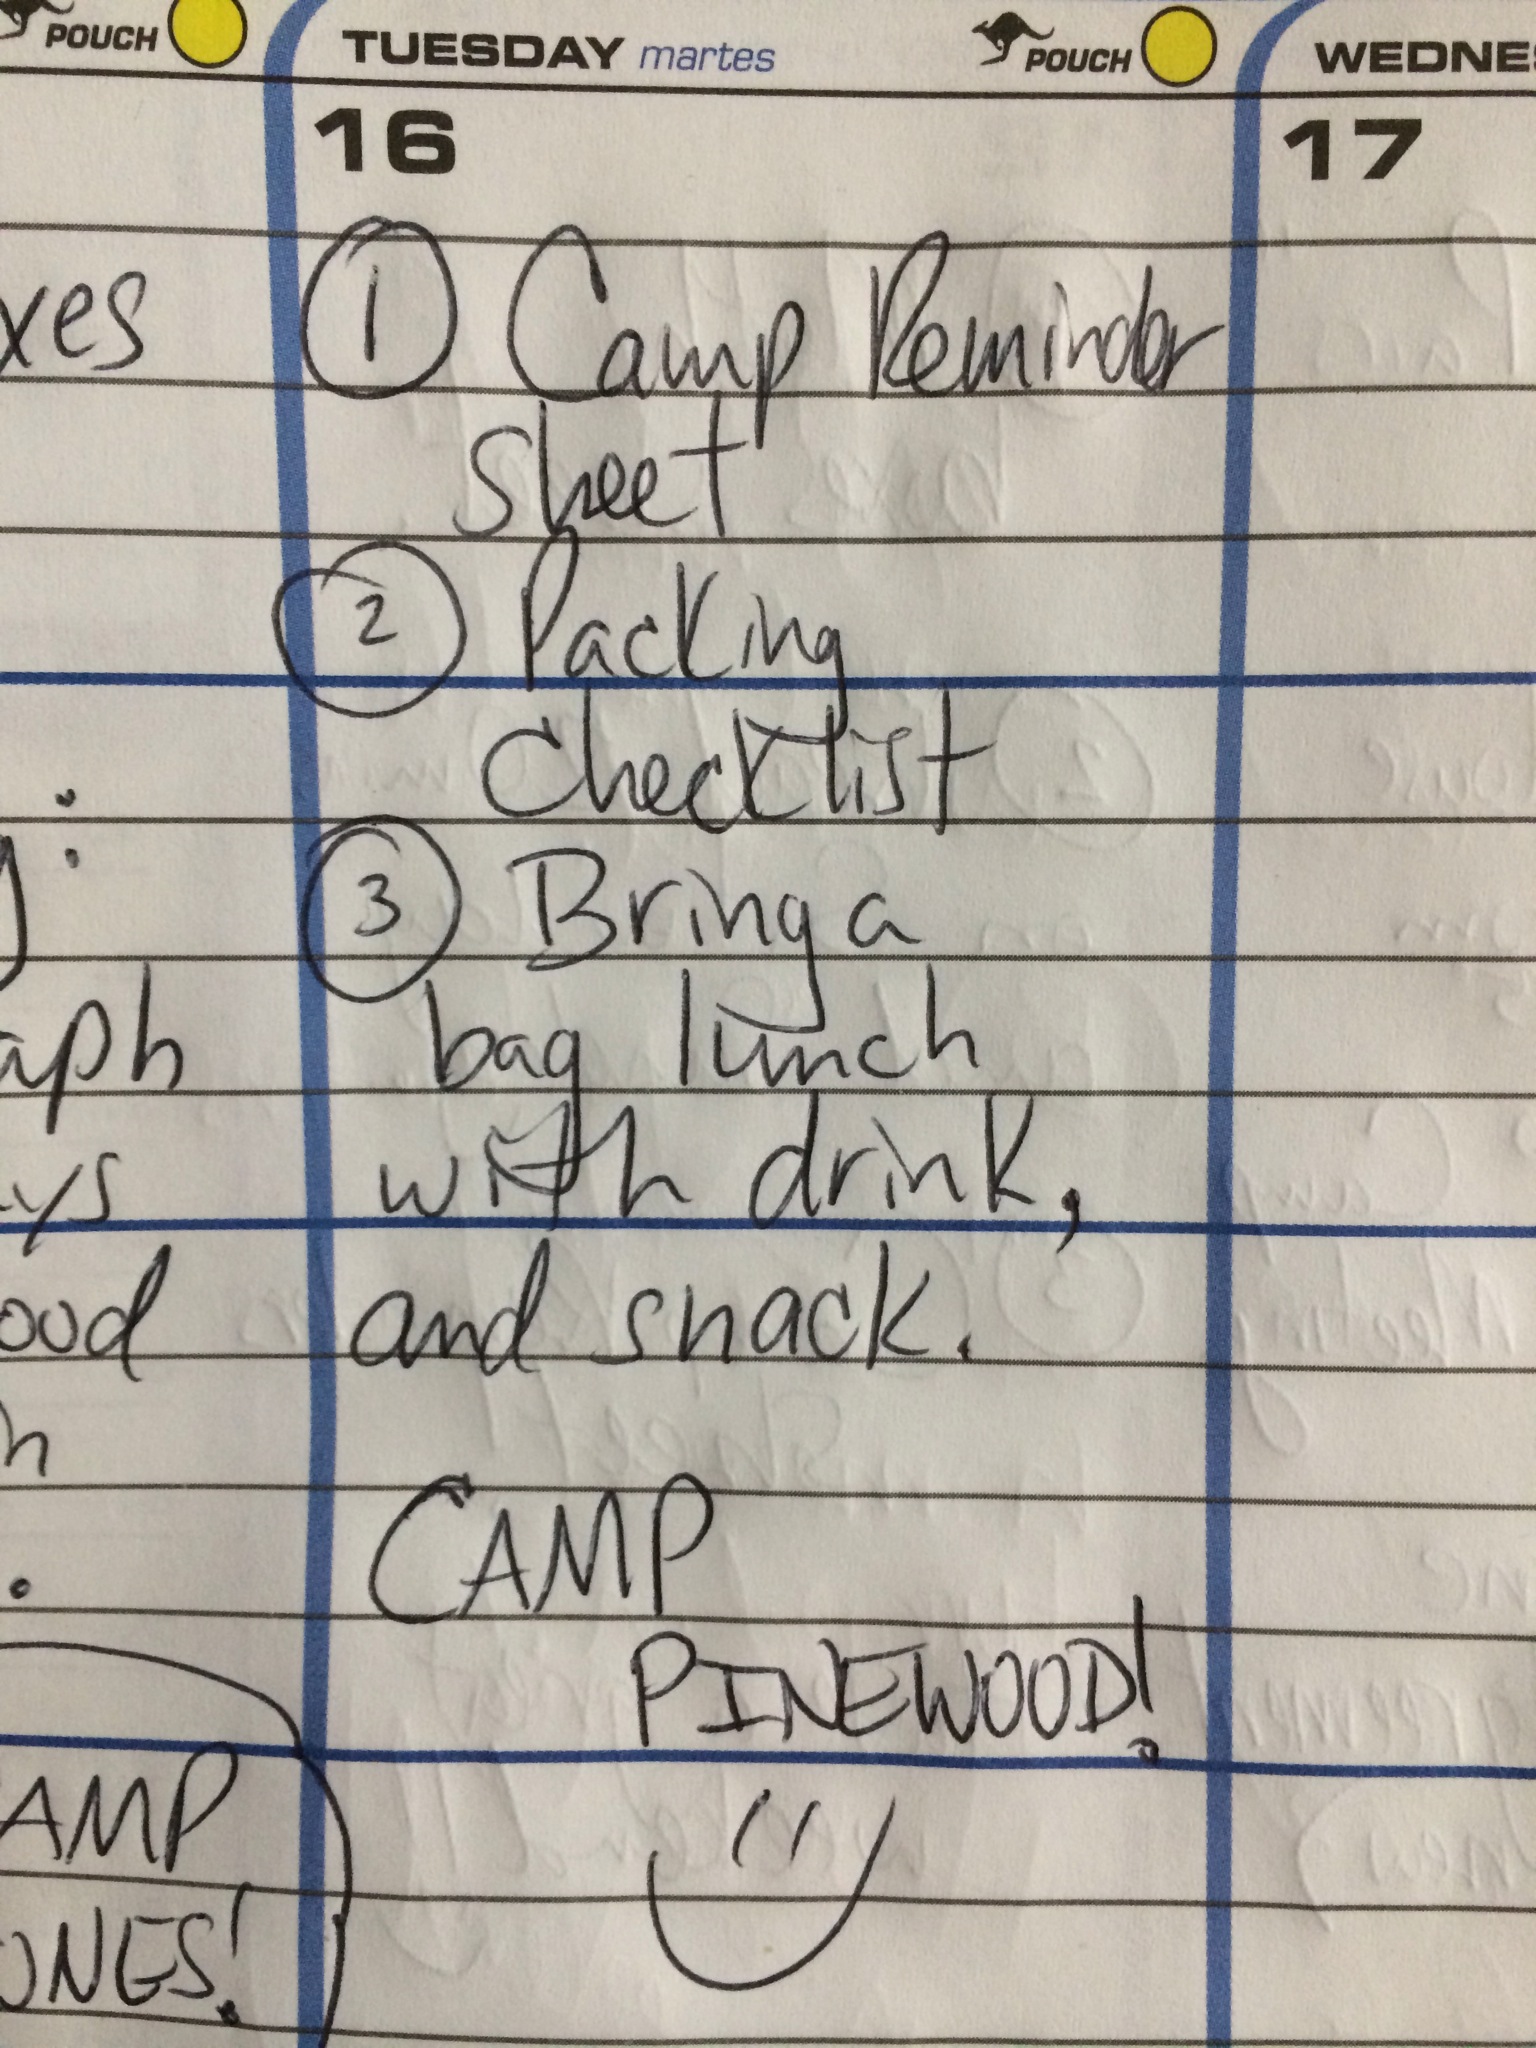 POUCH
TUESDAY martes
POUCH
WEDNES
16
17
① Camp Reminder
sheet
② Packing
checklist
③ Bring a
bag lunch
with drink,
and snack.
CAMP
PINEWOOD!
xes
:
aph
ays
ood
h
.
AMP
ONES!